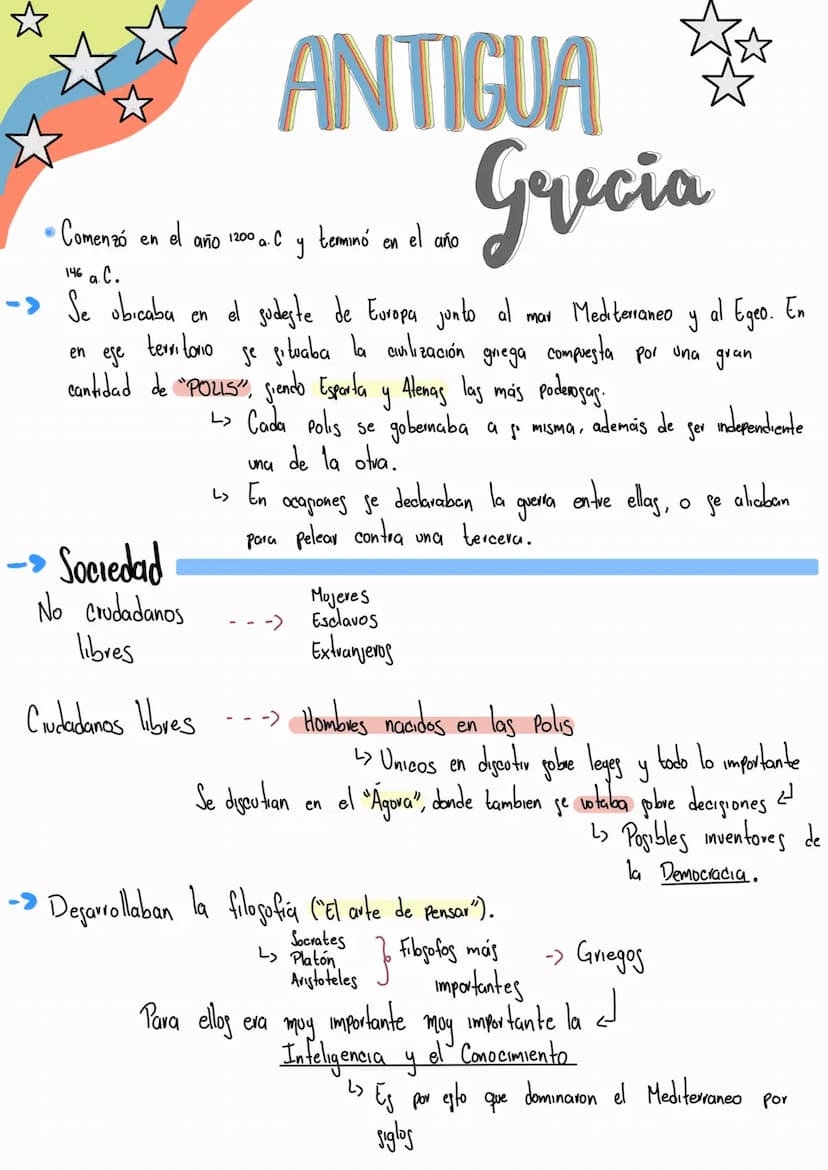 ANTIGUA
Grecia
• Comenzó en el año 1200 a.C y terminó en el año
146 a.C.
-> Se ubicaba en el sudeste de Europa junto al mar Mediterraneo y al Egeo. En
en ese territorio se situaba la civilización griega compuesta por una gran
cantidad de "POLIS", siendo Esparta y Atenas las más poderosas.
↳ Cada Polis se gobernaba a si misma, además de ser independiente
una de la otra.
↳ En ocasiones se declaraban la guerra entre ellas, o se aliaban
para pelear contra una tercera.
-> Sociedad
No Ciudadanos
libres
---> Mujeres
Esclavos
Extranjeros
Ciudadanos libres ---> Hombres nacidos en las Polis
↳ Unicos en discutir sobre leyes y todo lo importante
Se discutian en el "Ágora", donde tambien se votaba sobre decisiones ↲
↳ Posibles inventores de
la Democracia.
-> Desarrollaban la filosofía ("El arte de pensar").
↳ Socrates
Platón
Aristoteles
} Filosofos más
importantes
-> Griegos
Para ellos era muy importante muy importante la ↲
Inteligencia y el Conocimiento
↳ Es por esto que dominaron el Mediterraneo por
siglos